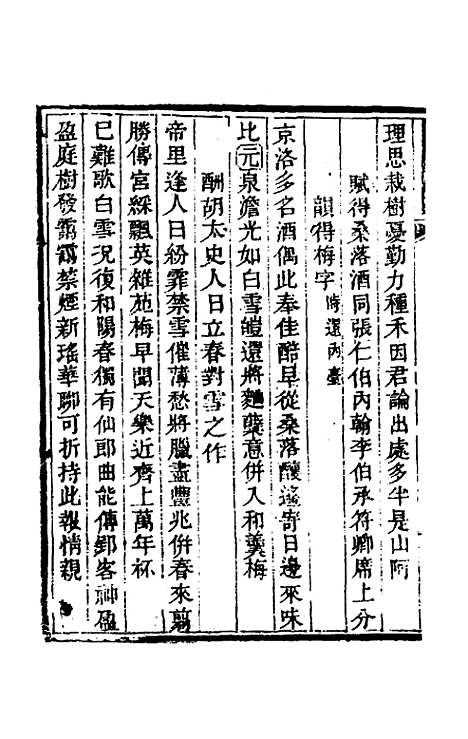 理思栽樹憂勤力種禾因君論出處多半是山阿
賦得桑落酒同張仁伯丙翰李伯承符卿席上分
韻得梅字時還內臺
京洛多名酒偶此奉佳酷早從桑落釀遙寄日邊來味
比元泉澹光如白雪皚還將麯蘗意併入和羹梅
酬胡太史人日立春對雪之作
帝里逢人日紛霏禁雪催薄愁將臘盡豐兆併春來剪
勝傳宮綵飄英雜苑梅早聞天樂近齊上萬年杯
巳難歌白雪況復和陽春獨有仙郎曲能傳郢客神盈
盈庭樹發靄靄禁煙新瑤華聊可折持此報情親